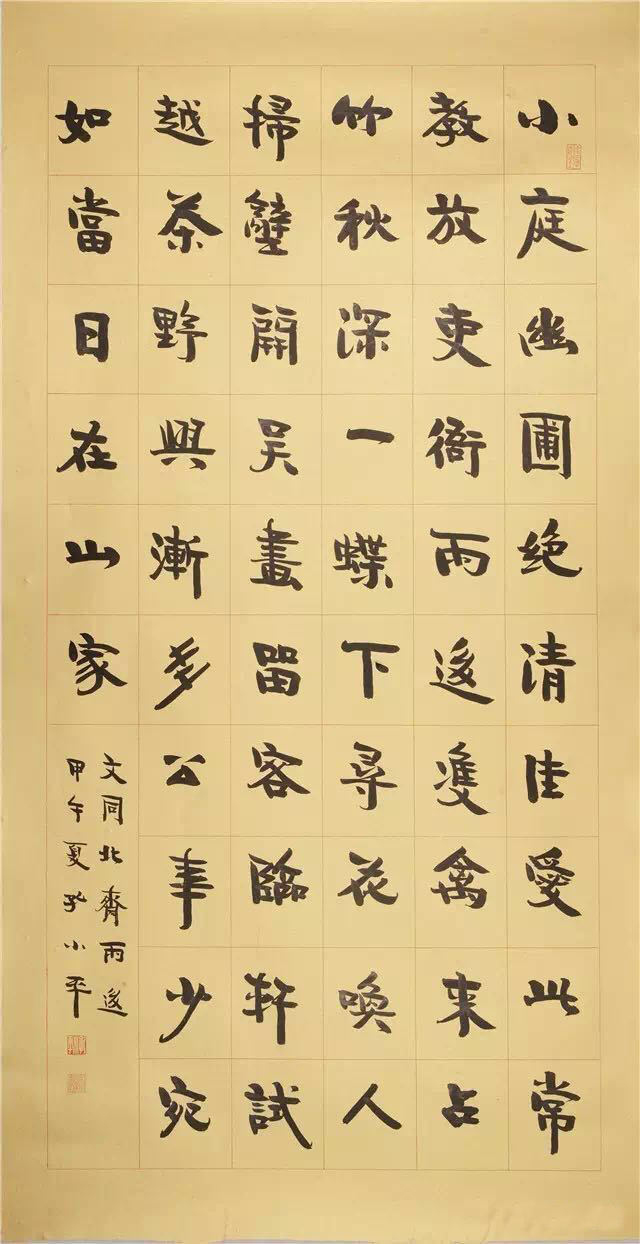 小庭幽圃绝清佳愛此常
教放吏衙雨後雙禽来占
竹秋深一蝶下尋花喚人
掃壁開吴畫留客臨軒試
越茶野興漸多公事少宛
如當日在山家
文同北齋雨後
甲午夏小平